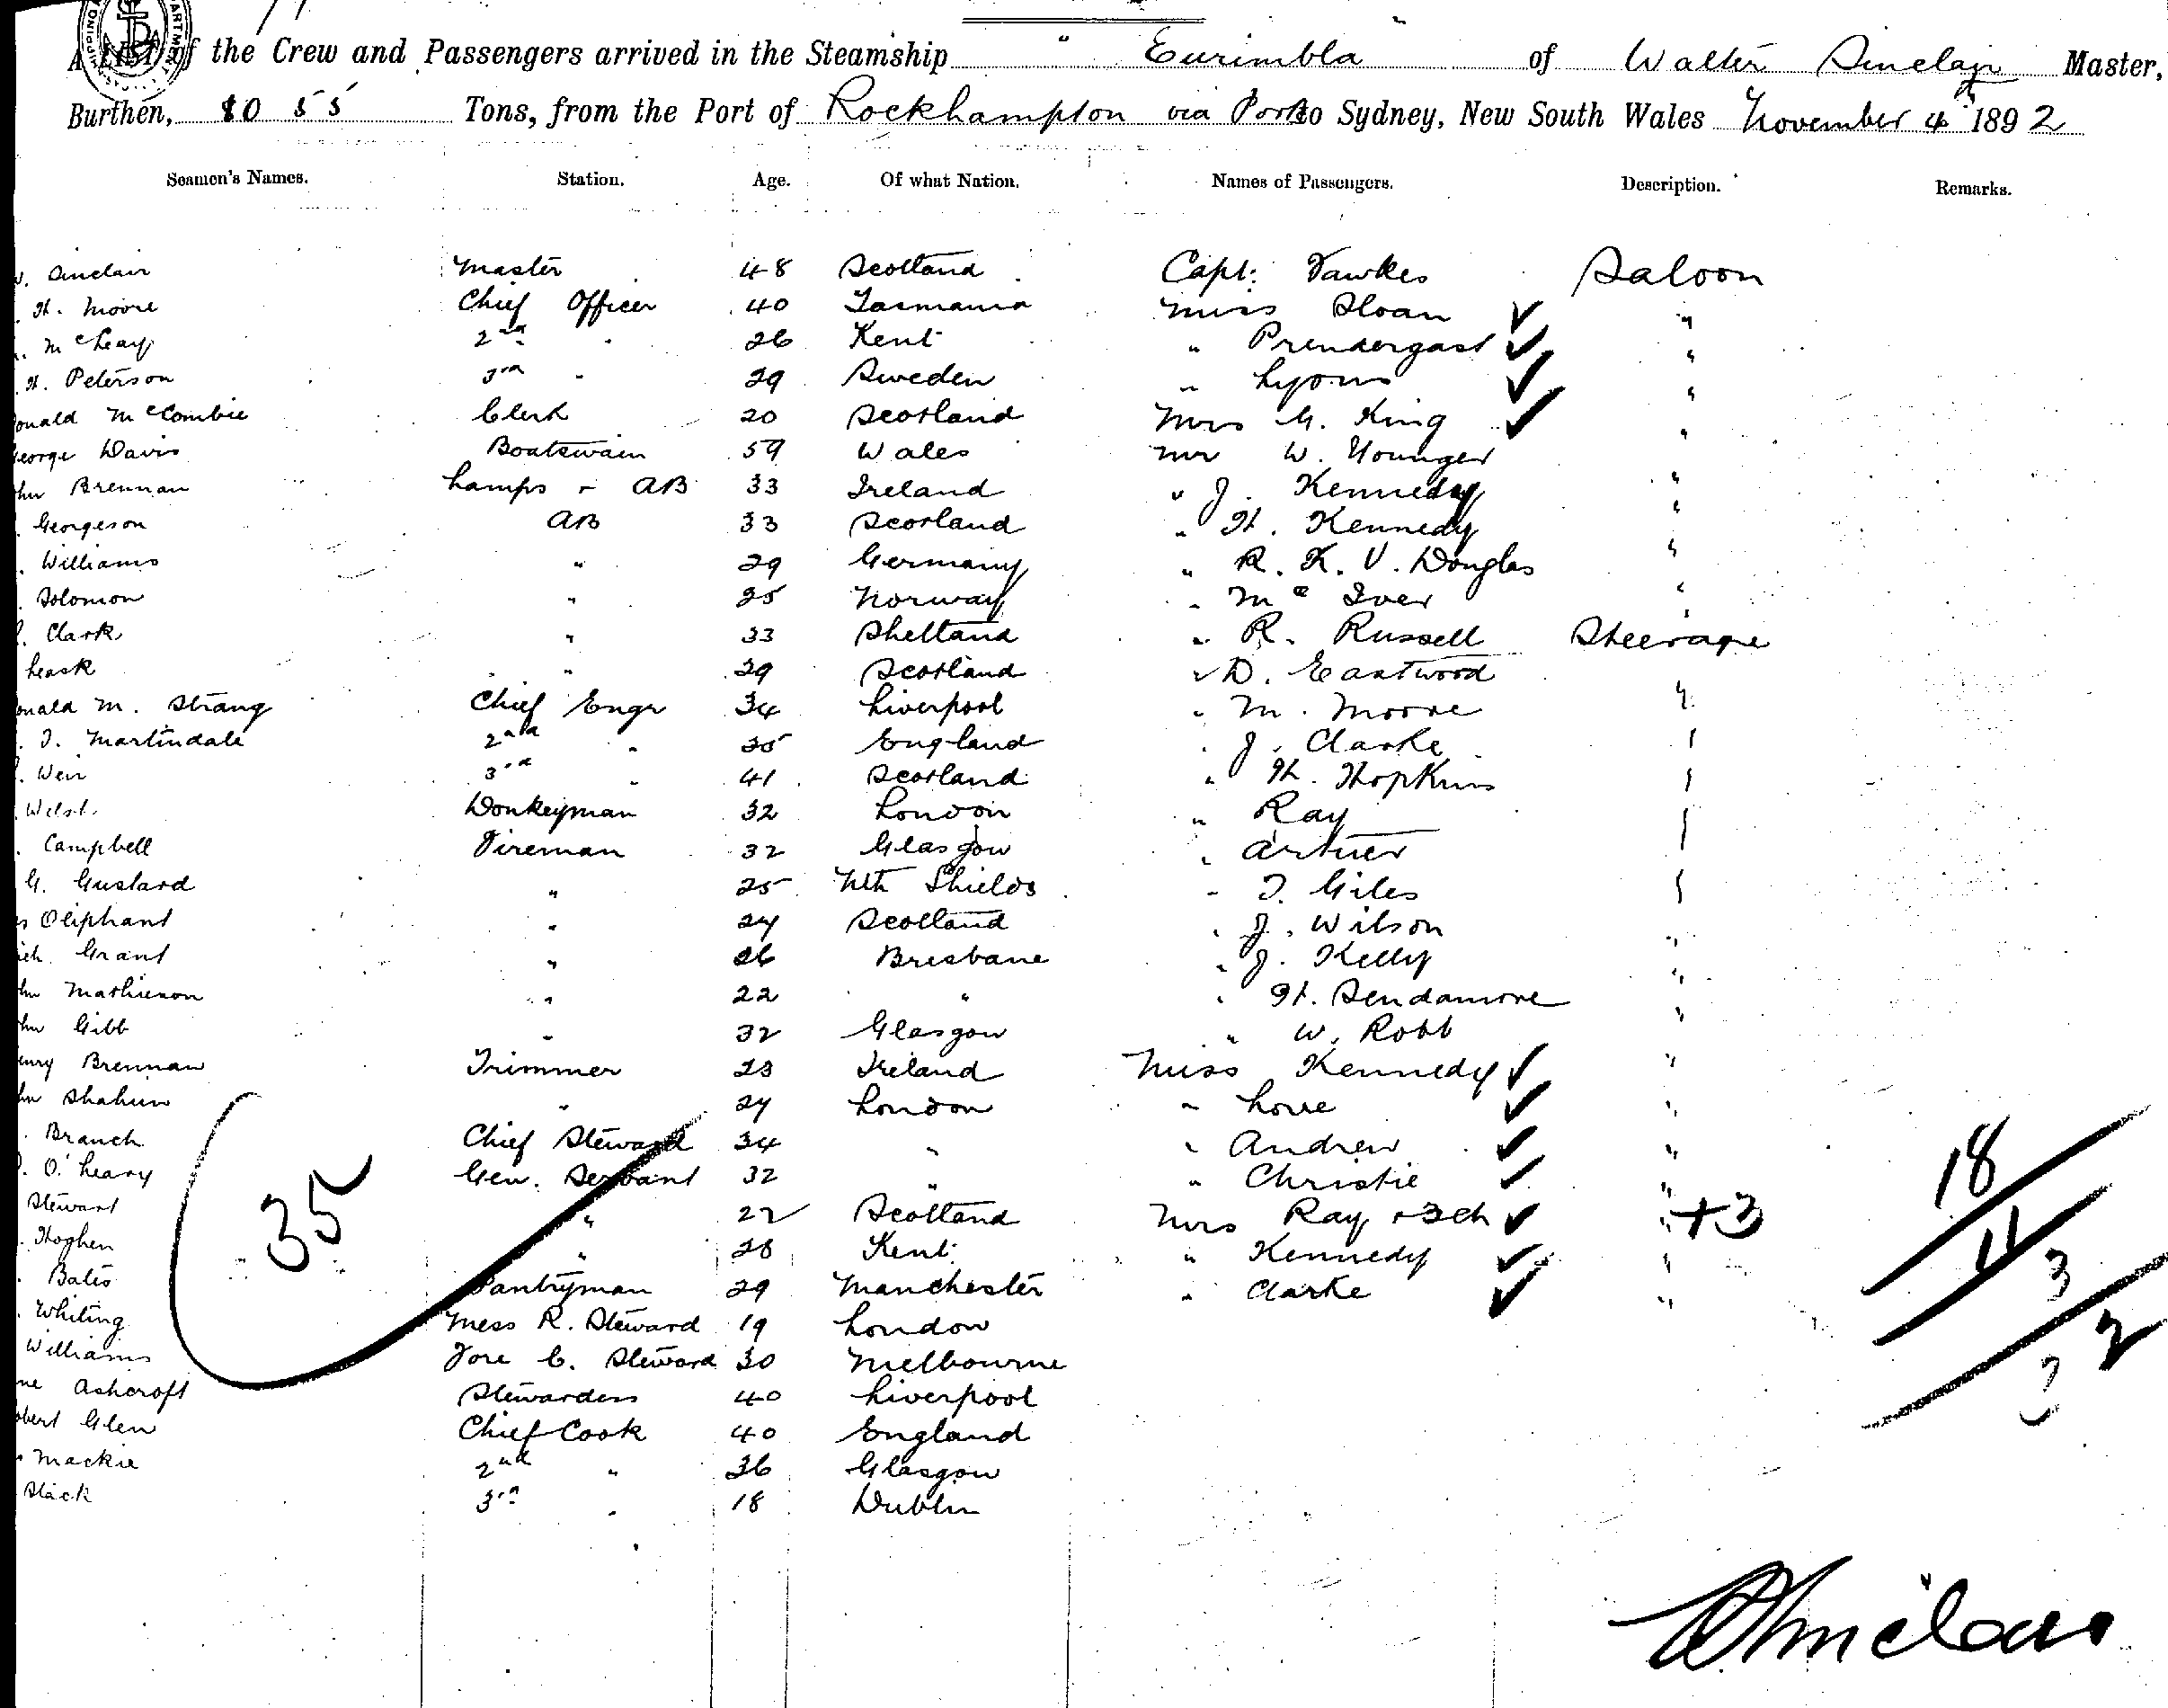 A List of the Crew and Passengers arrived in the Steamship "Eurimbla" of Walter Sinclair Master,
Burthen, 1055 Tons, from the Port of Rockhampton via Ports to Sydney, New South Wales November 4 1892
Seamen's Names. Station. Age. Of what Nation. Names of Passengers. Description. Remarks.
W. Sinclair Master 48 Scotland Capt: Fawkes Saloon
H. Moore Chief Officer 40 Tasmania Miss Sloan "
2nd " 26 Kent " Prendergast "
H. Peterson 3rd " 29 Sweden " Lyons "
onald McCombie Clerk 20 Scotland Mrs G. King "
eorge Davis Boatswain 59 Wales Mr W. Younger "
hn Brennan Lamps & AB 33 Ireland " J. Kennedy "
Georgeson AB 33 Scotland " H. Kennedy "
Williams " 29 Germany " R. K. V. Douglas "
Solomon " 25 Norway " Mc Iver "
Clark " 33 Shetland " R. Russell Steerage
Leask " 29 Scotland " D. Eastwood
onald M. Strang Chief Engr 34 Liverpool " M. Moore "
J. Martindale 2nd " 35 England " J. Clarke "
Weir 3rd " 41 Scotland " H. Hopkins "
Donkeyman 32 London " Ray "
Campbell Fireman 32 Glasgow "
G. Gustard " 25 Nth Shields " T. Giles "
s Oliphant " 24 Scotland " J. Wilson "
ich. Grant " 26 Brisbane " J. Kelly "
hn Mathieson " 22 " " H. Sendamore "
hn Gibb " 32 Glasgow " W. Robb "
enry Brennan Trimmer 23 Ireland Miss Kennedy "
hn " 24 London " Lowe "
Branch Chief Steward 34 " " Andrew "
O'Leary Gen. Servant 32 " " Christie "
Stewart " 22 Scotland Mrs Ray + 3 ch " +3
Hoghen " 28 Kent " Kennedy "
Bates Pantryman 29 Manchester " Clarke "
Whiting Mess R. Steward 19 London
Williams Fore C. Steward 30 Melbourne
ne Ashcroft Stewardess 40 Liverpool
obert Glen Chief Cook 40 England
Mackie 2nd " 36 Glasgow
Slack 3rd " 18 Dublin
35
18
11
3
2
WSinclair